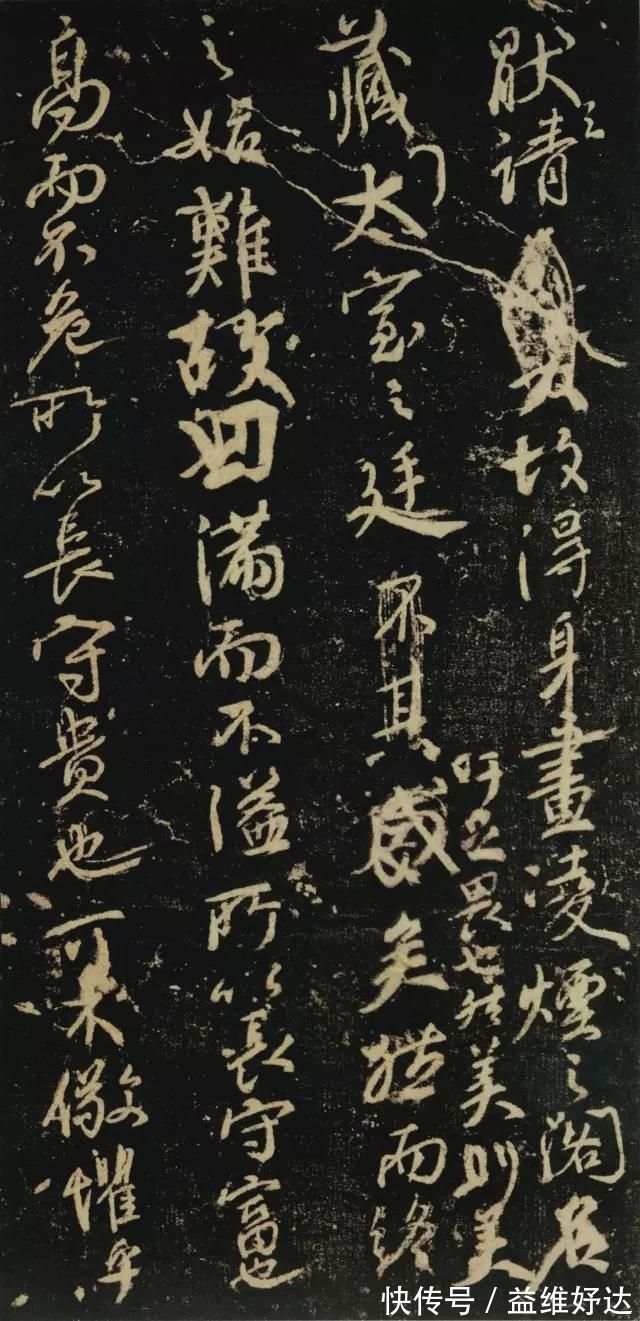 厭之請故得身畫凌煙之閣名
藏太室之廷不其盛矣然而終
吁足畏也然美則美
之始難故曰滿而不溢所以長守富也
高而不危所以長守貴也可不儆懼乎
快传号 / 益维妤达